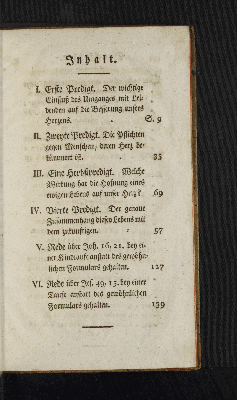 Inhalt.
I. Erste Predigt. Der wichtige
Einfluß des Umganges mit Lei-
denden auf die Besserung unsers
Herzens. S. 9
II. Zweyte Predigt. Die Pflichten
gegen Menschen, deren Herz be-
kümmert ist. 35
III. Eine Herbstpredigt. Welche
Wirkung hat die Hofnung eines
ewigen Lebens auf unser Herz? 69
IV. Vierte Predigt. Der genaue
Zusammenhang dieses Lebens mit
dem zukünftigen. 97
V. Rede über Joh. 16, 21. bey ei-
ner Kindtaufe anstatt des gewöhn-
lichen Formulars gehalten. 127
VI. Rede über Jes. 49, 15. bey einer
Taufe anstatt des gewöhnlichen
Formulars gehalten. 139